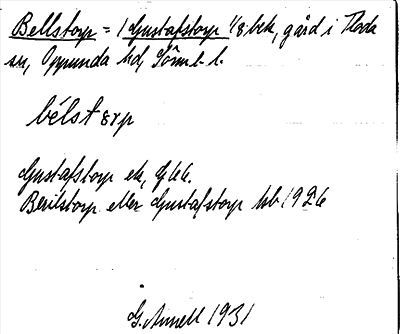 Bellstorp = 1 Gustafstorp 1/8 bek, gård i Floda
sn, Oppunda hd, Söml. l.
bélstɛrp
Gustafstorp ek, G66.
Berilstorp eller Gustafstorp hb 1926
G. Annell 1931